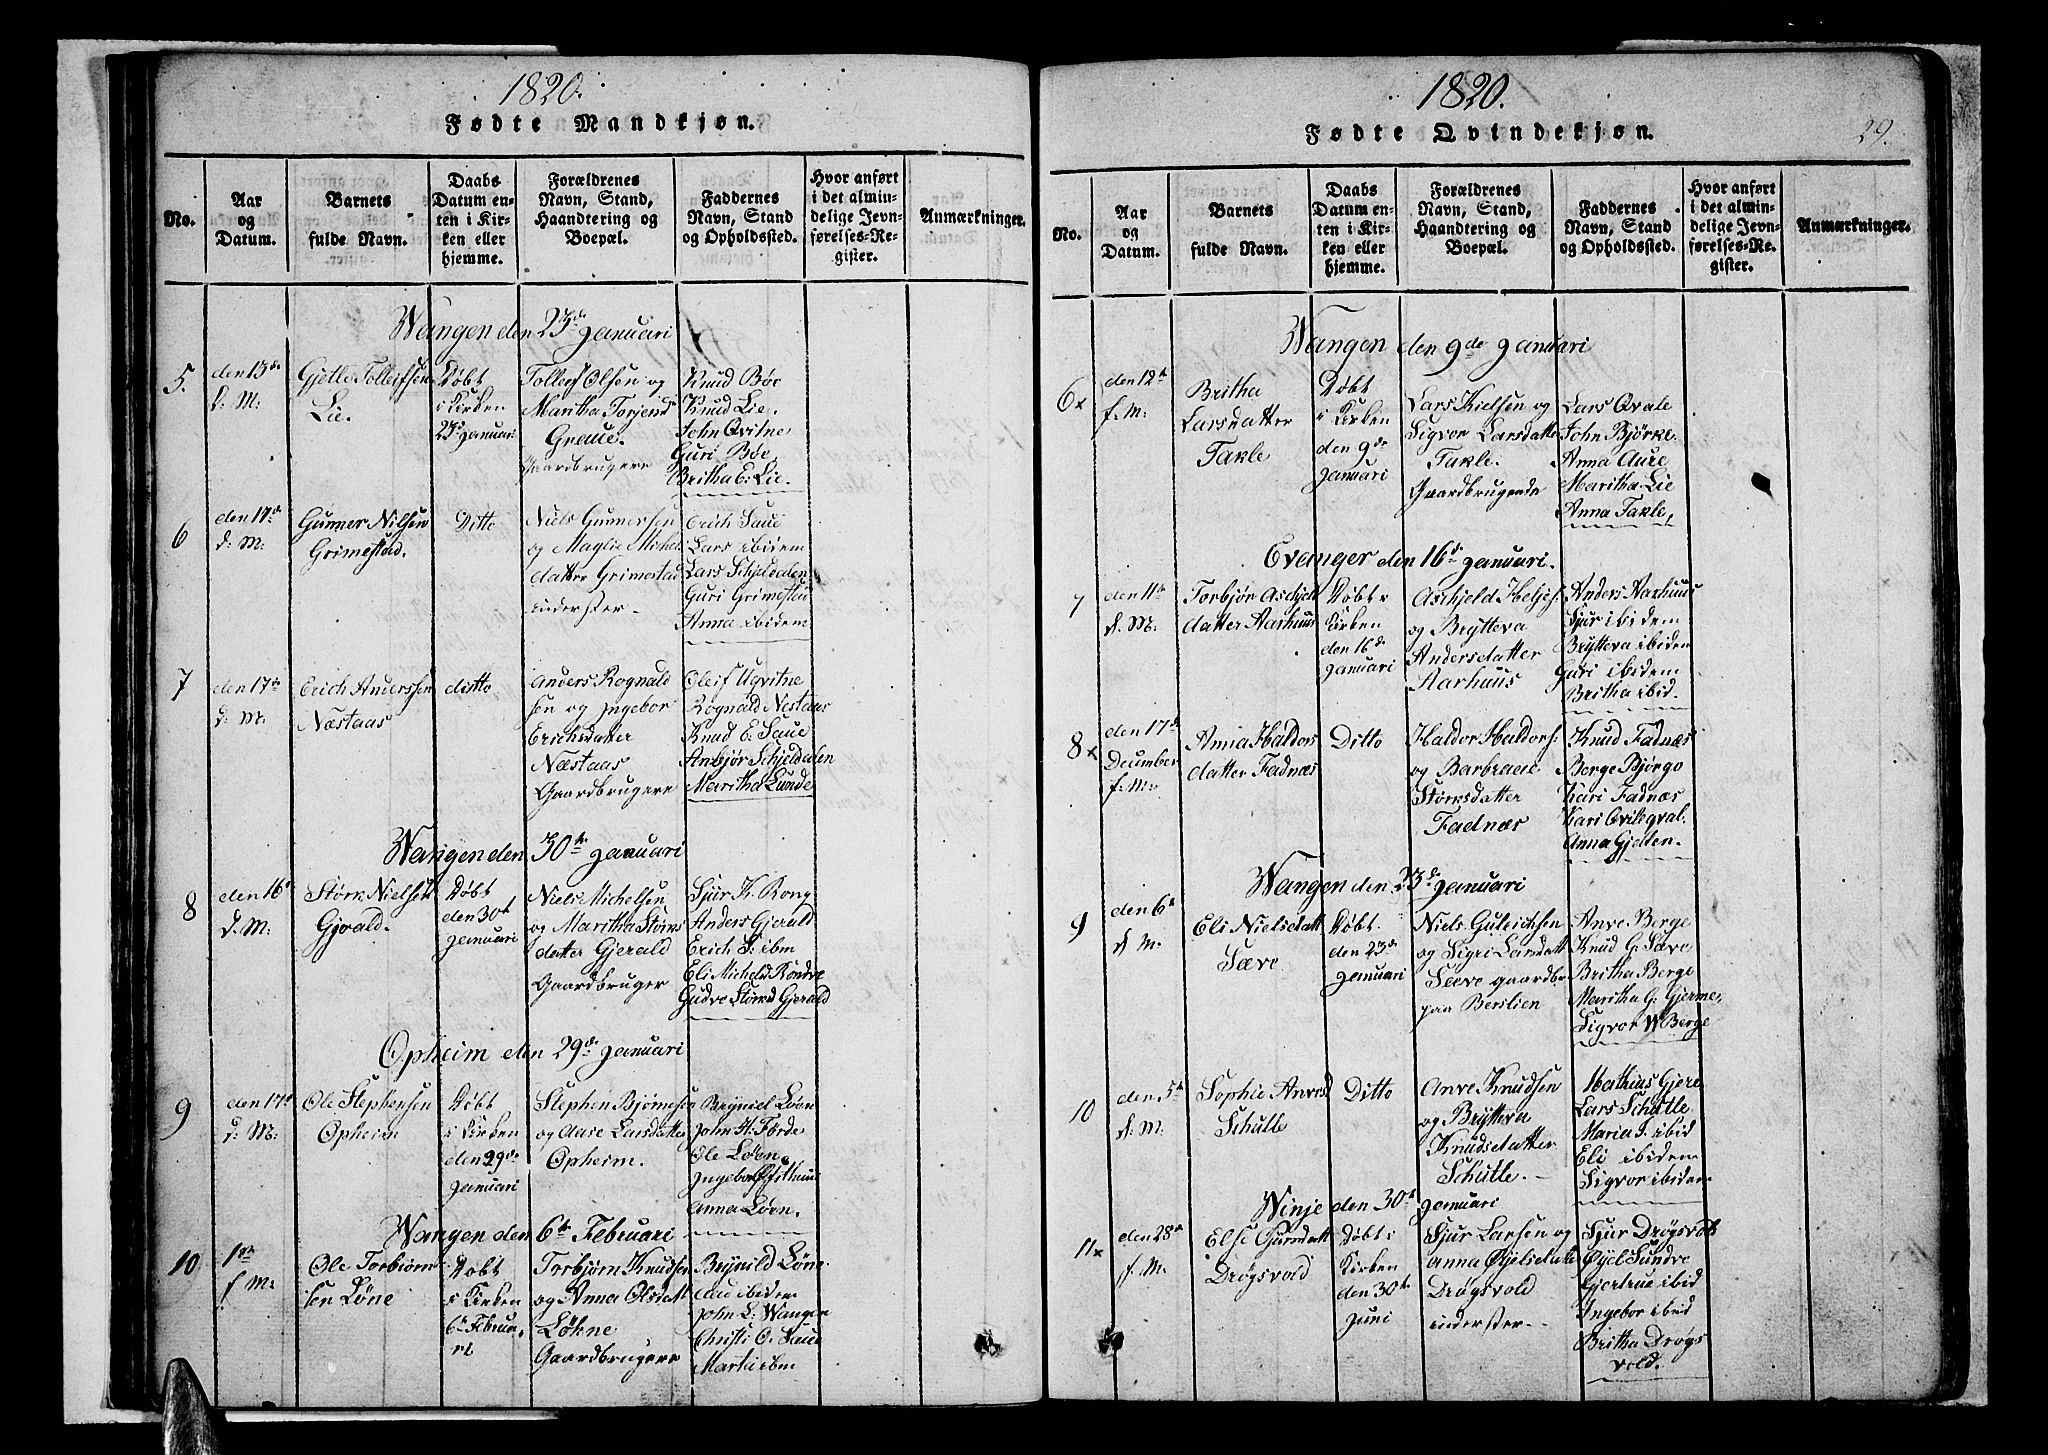 1820.
Fødte Mandkjøn.
No.
Aar
og
Datum.
Barnets
fulde Navn.
Daabs
Datum en-
ten i Kir-
ken eller
hjemme.
Forældrenes
Navn, Stand,
Haandtering og
Boepæl.
Faddernes
Navn, Stand
og Opholdssted.
Hvor anført
i det almin-
delige Jevn-
førelses-Re-
gister.
Anmærkninger.
Wangen den 23de Januari
5.
den 13de
d: M:
Gjelle Tolleifsen
Lie.
Døbt
i Kirken
23de Januari
Tolleif Olsen og
Maritha Torjersd
Greue.
Gaardbrugere
Knud Bøe
Knud Lie.
John Qvitne
Guri Bøe,
Britha E: Lie.
6
den 17de
d: M:
Gunner Nilsen
Grimestad.
Ditto
Niels Gunnersen
og Maglie Michels
datter Grimestad
inderster-
Erich Saue
Lars ibidem
Lars Schjeldalen
Guri Grimestad
Anna ibidem
7
den 17de
d: M:
Erich Anderssen
Næstaas
ditto
Anders Rognald
sen og Ingebor
Erichsdatter
Næstaas
Gaardbrugere
Oleif Uqvitne
Rognald Nestaas
Knud E. Saue
Anbjør Schjeldalen
Maritha Lunde
Wangen den 30te Januari
8
den 16de
d. M:
Størk Nielsen
Gjerald.
Døbt
den 30te
Januari
Niels Michelsen
og Maritha Størks
datter Gjerald
Gaardbruger
Sjur K: Rong
Anders Gjerald
Erich S: ibm
Eli Michelsd Rondve
Gudve Størksd Gjerald
Opheim den 29de Januari
9
den 17de
d: M:
Ole Stephensen
Opheim
Døbt
i Kirken
den 29de
Januari
Stephen Bjørnesen
og Aase Larsdatter
Opheim.
Brynild Løen
John H: Førde
Ole Løen,
Anna Løen.
Wangen den 6te Februari
10
1ste
f M:
Ole Torbiørn
sen Løne
Døbt
i Kirken
6te Februa
ri
Torbjørn Knudsen
og Anna Olsdatt
Løhne
Gaardbrugere
Brynild Løne
Aad ibidem
John L: Wangen
Christi O. Saue
Marta ibm
1820.
Fødte Qvindekjøn.
29.
No.
Aar
og
Datum.
Barnets
fulde Navn.
Daabs
Datum en-
ten i Kir-
ken eller
hjemme.
Forældrenes
Navn, Stand,
Haandtering og
Boepæl.
Faddernes
Navn, Stand
og Opholdssted.
Hvor anført
i det almin-
delige Jevn-
førelses-Re-
gister.
Anmærkninger.
Wangen den 9de Januari
6x
den 12te
f. M:
Britha
Larsdatter
Takle
Døbt
i Kirken
den 9de
Januari
Lars Kielsen og
Sigvor Larsdatte
Takle.
Gaardbrugende
Lars Qvale
John Bjørke
Anna Aure
Maritha Lie
Anna Takle,
Evanger den 16de Januari.
7
den 11te
d. M:
Torbjør Aschjel
datter Aarhuus
Døbt i
Kirken
den 16de
Januari
Aschjeld Heljes:
og Brytteva
Andersdatter
Aarhuus
Anders Aarhuus
Sjur ibidem
Brytteva ibidem
Guri ibidem
Britha ibid.
8x
den 17de
December
f. M:
Anna Haldors
datter Fadnæs
Ditto
Haldor Haldors:
og Barbraae
Størksdatter
Fadnæs
Knud Fadnæs
Berge Bjørgo
Kari Fadnæs
Kari Qvilegval.
Anna Gjelten.
Wangen den 23de Januari
9
den 6te
d M:
Eli Nielsdatt
Sæve
Døbt.
den 23de
Januari
Niels Guleichsen
og Sigri Larsdatt
Sæve gaardbr
paa Berslien
Anve Berge
Knud G: Sæve
Britha Berge
Maritha G: Gjerme,
Sigvor W Berge
10
den 5te
d. M:
Sophie Anvesd
Schulle
Ditto
Anve Knudsen
og Brytteva
Knudsdatter
Schutle.-
Mathias Gjere
Lars Schutle
Maria I. ibid
Eli ibidem
Sigvor ibidem
Winje den 30te Januari
11x
den 28de
f. M:
Else Sjursdatt
Drøgsvold
Døbt i
Kirken
den 30te
Juni
Sjur Larsen og
Anna Øjelsdatte
Drøgsvold
inderster.-
Sjur Drøgsvold
Øyel Sundve
Gjertrue ibid
Ingebor ibid
Britha Drøgs
vold.